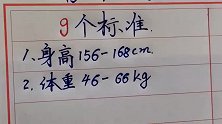 9个标准.
1.身高156-168cm.
2.体重46-66kg